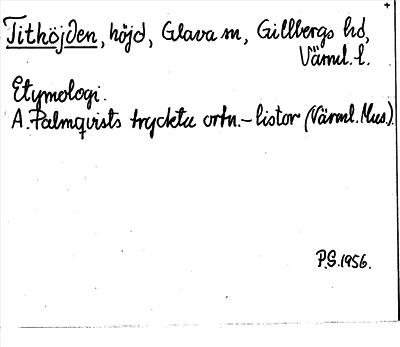 +
Tithöjden, höjd, Glava sn, Gillbergs hd,
Värml. l.
Etymologi.
A. Palmqvists tryckta ortn.-listor (Värml. Mus.).
P.G. 1956.